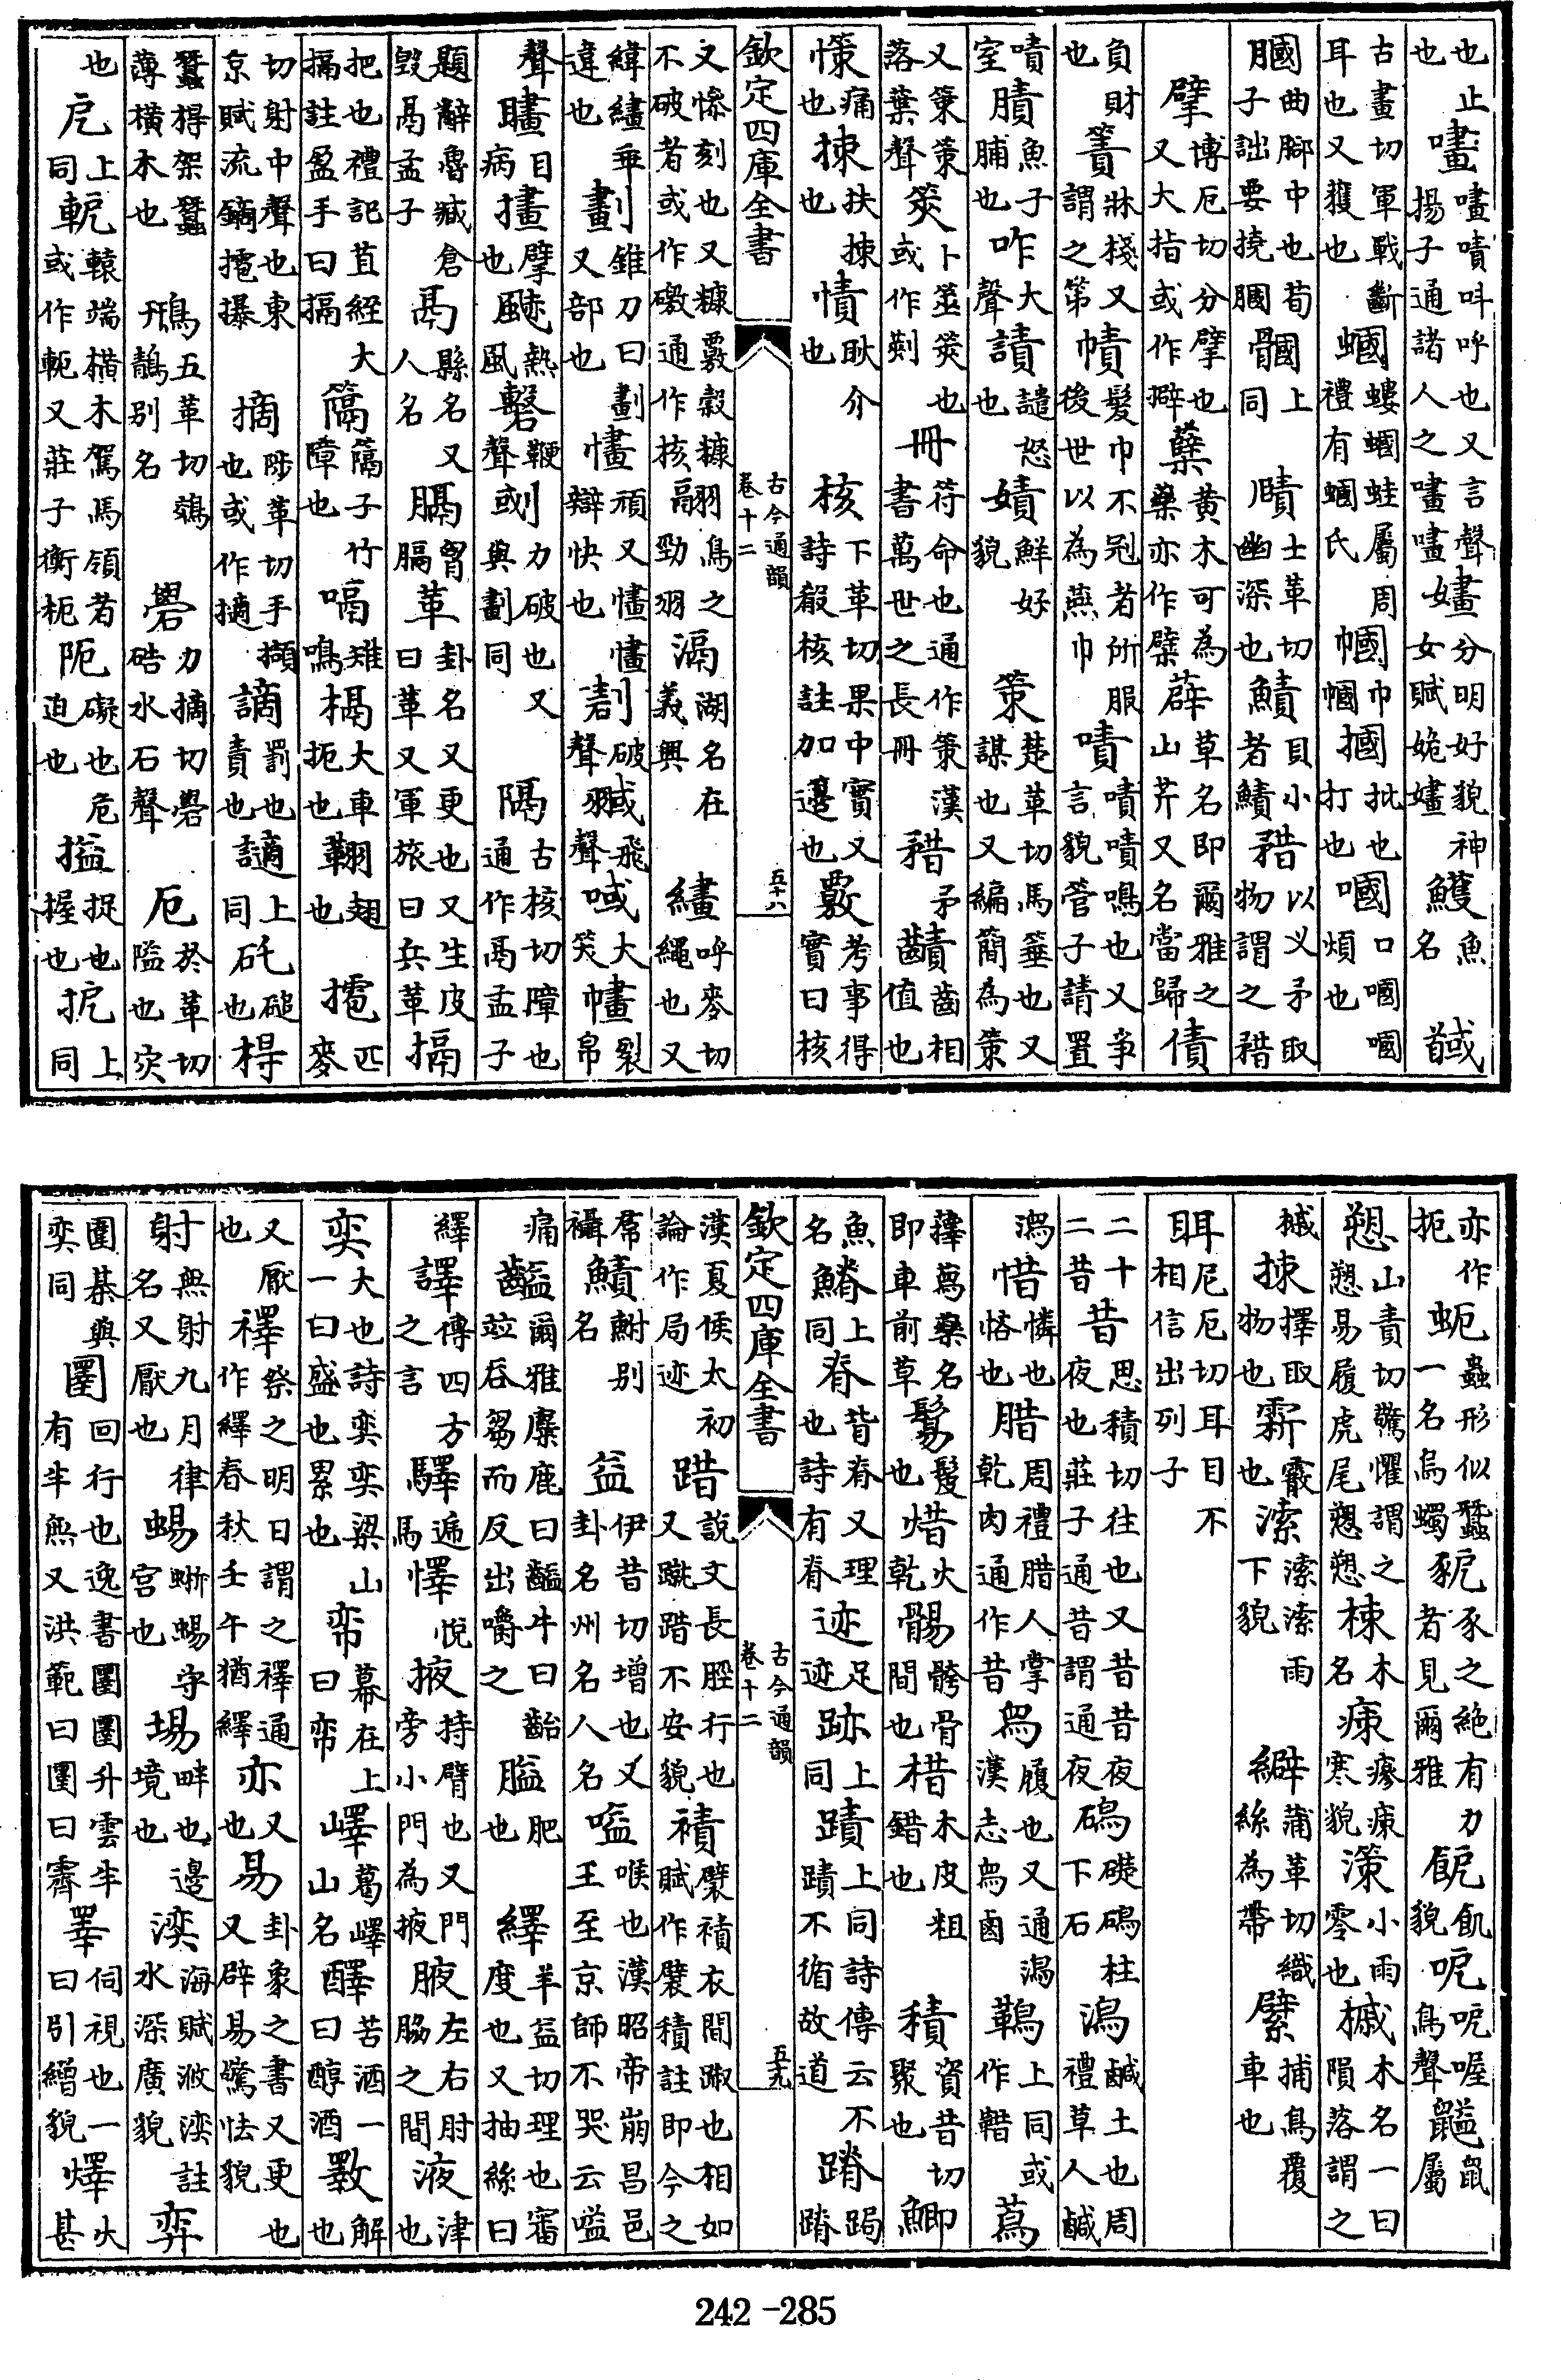 也止也嘖叫呼也又言聲揚子通諸人之嫿分明好貌神女賦姽嫿鱯魚名聝
古畫切軍戰斷耳也又獲也蟈螻蟈蛙屬周禮有蟈氏幗巾幗摑批也打也嘓口嘓嘓煩也
膕曲腳中也荀子詘要撓膕上同賾士革切幽深也鰿貝小者鰿矠以义矛取物謂之矠
擘博厄切分擘也又大指或作擗蘗黄木可為藥亦作檗薜草名即爾雅之山芹又名當歸債
負財也簀牀棧又謂之第幘髮巾不冠者所服後世以為燕巾嘖嘖嘖鳴也又爭言貌管子請置
嘖室魚子脯也咋大聲讀讁怒也嫧鮮好貌策楚革切馬箠也又謀也又編簡為策
又策策落葉聲筴卜筮筴也或作冊符命也通作策漢書萬世之長冊矠矛齰齒相值也
㥽痛也捒扶捒也㥽耿介也核下革切果中實又詩殽核註加籩也覈考事得實曰核
欽定四庫全書 古今通韻 卷十二 五十八
又慘刻也又糠覈穀糠不破者或作礉通作核翮羽鳥之勁羽滆湖名在義興繣呼麥切繩也又
緯繣乖違也劃錐刀曰劃又部也㦎頑又㦎㦎辯快也破聲飛聲大笑裂帛
聲目病擘也熱風鞕聲力破也又與劃同隔古核切障也通作鬲孟子
題辭魯臧倉毀鬲孟子鬲縣名又人名膈胷膈革卦名又更也又生皮曰革又軍旅曰兵革搹
把也禮記苴絰大搹註盈手曰搹篱子竹障也嗝雉鳴槅大車扼也翮翅也匹麥
切射中聲也東京賦流鏑摘陟革切手擷也或作擿謫罰也責也讁上同矺磓也槫
蠶槫架蠶薄橫木也五革切鶂鷊别名礐力摘切礐硞水石聲厄於革切隘也灾
也戹上同軶轅端橫木駕馬領者或作軛又莊子衡枙阸礙也危迫也搤捉也握也扼上同
亦作扼蚅蟲形似蠶一名烏蠋豟豕之絶有力者見爾雅飢貌呃呃喔鳥聲鼠屬
愬山責切驚懼謂之愬易履虎尾愬愬梀木名瘶瘮瘶寒貌小雨零也槭木名一曰隕落謂之
槭捒擇取物也霰也溹溹溹雨下貌繴蒲革切織絲為帶繴捕鳥覆車也
尼厄切耳目不相信出列子
二十二昔昔思積切往也又昔昔夜夜也莊子通昔謂通夜磶礎磶柱下石潟鹹土也周禮草人鹹
潟惜憐也愘也腊周禮腊人掌乾肉通作昔舄履也又通潟漢志舄鹵鵲上同或作䧿蕮
蘀蕮藥名即車前草鬄髲也焟火乾骨間也棤木皮粗錯也積資昔切聚也鯽
魚名鰿上同脊背脊又理也詩有脊迹足迹跡上同蹟上同詩傳云不蹟不循故道蹐跼蹐
欽定四庫全書 古今通韻 卷十二 五十九
漢夏侯太初論作局迹踖說文長脛行也又踧踖不安貌襀襞襀衣間踧也相如賦作襞積註即今之
席襵鰿鮒别名益伊昔切增也又卦名州名人名嗌喉也漢昭帝崩昌邑王至京師不哭云嗌
痛齸爾雅麋鹿曰齸牛曰齝竝吞芻而反出嚼之膉肥也繹羊益切理也審度也又抽絲曰
繹譯傳四方之言驛遞馬懌悅掖持臂也又門旁小門為掖腋左右肘脇之間液津也
奕大也詩奕奕梁山一曰盛也累也帟幕在上曰帟嶧葛嶧山名醳苦酒一曰醇酒斁解也
又厭也襗祭之明日謂之襗通作繹春秋壬午猶繹亦又也易卦象之書又更也又辟易驚怯貌
射無射九月律名又厭也蜴蜥蜴守宮也埸畔也邊境也海賦註水深廣貌弈
圍棊與奕同圛回行也逸書圛圛升雲半有半無又洪範曰圛曰霽睪伺視也一曰引繒貌㷸火甚
242-285